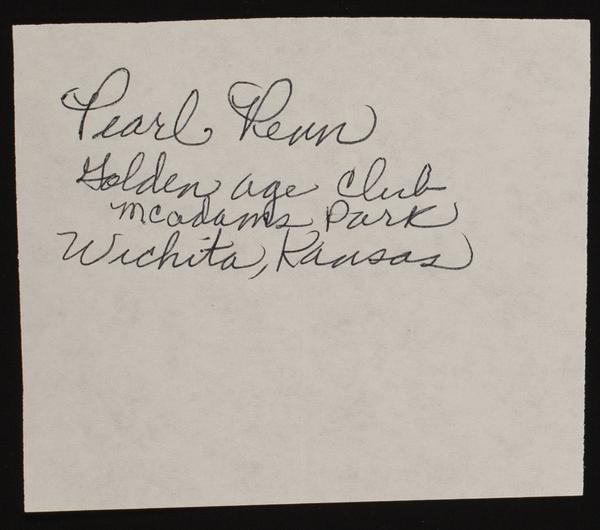 Pearl Penn
Golden age Club
McAdams Park
Wichita, Kansas